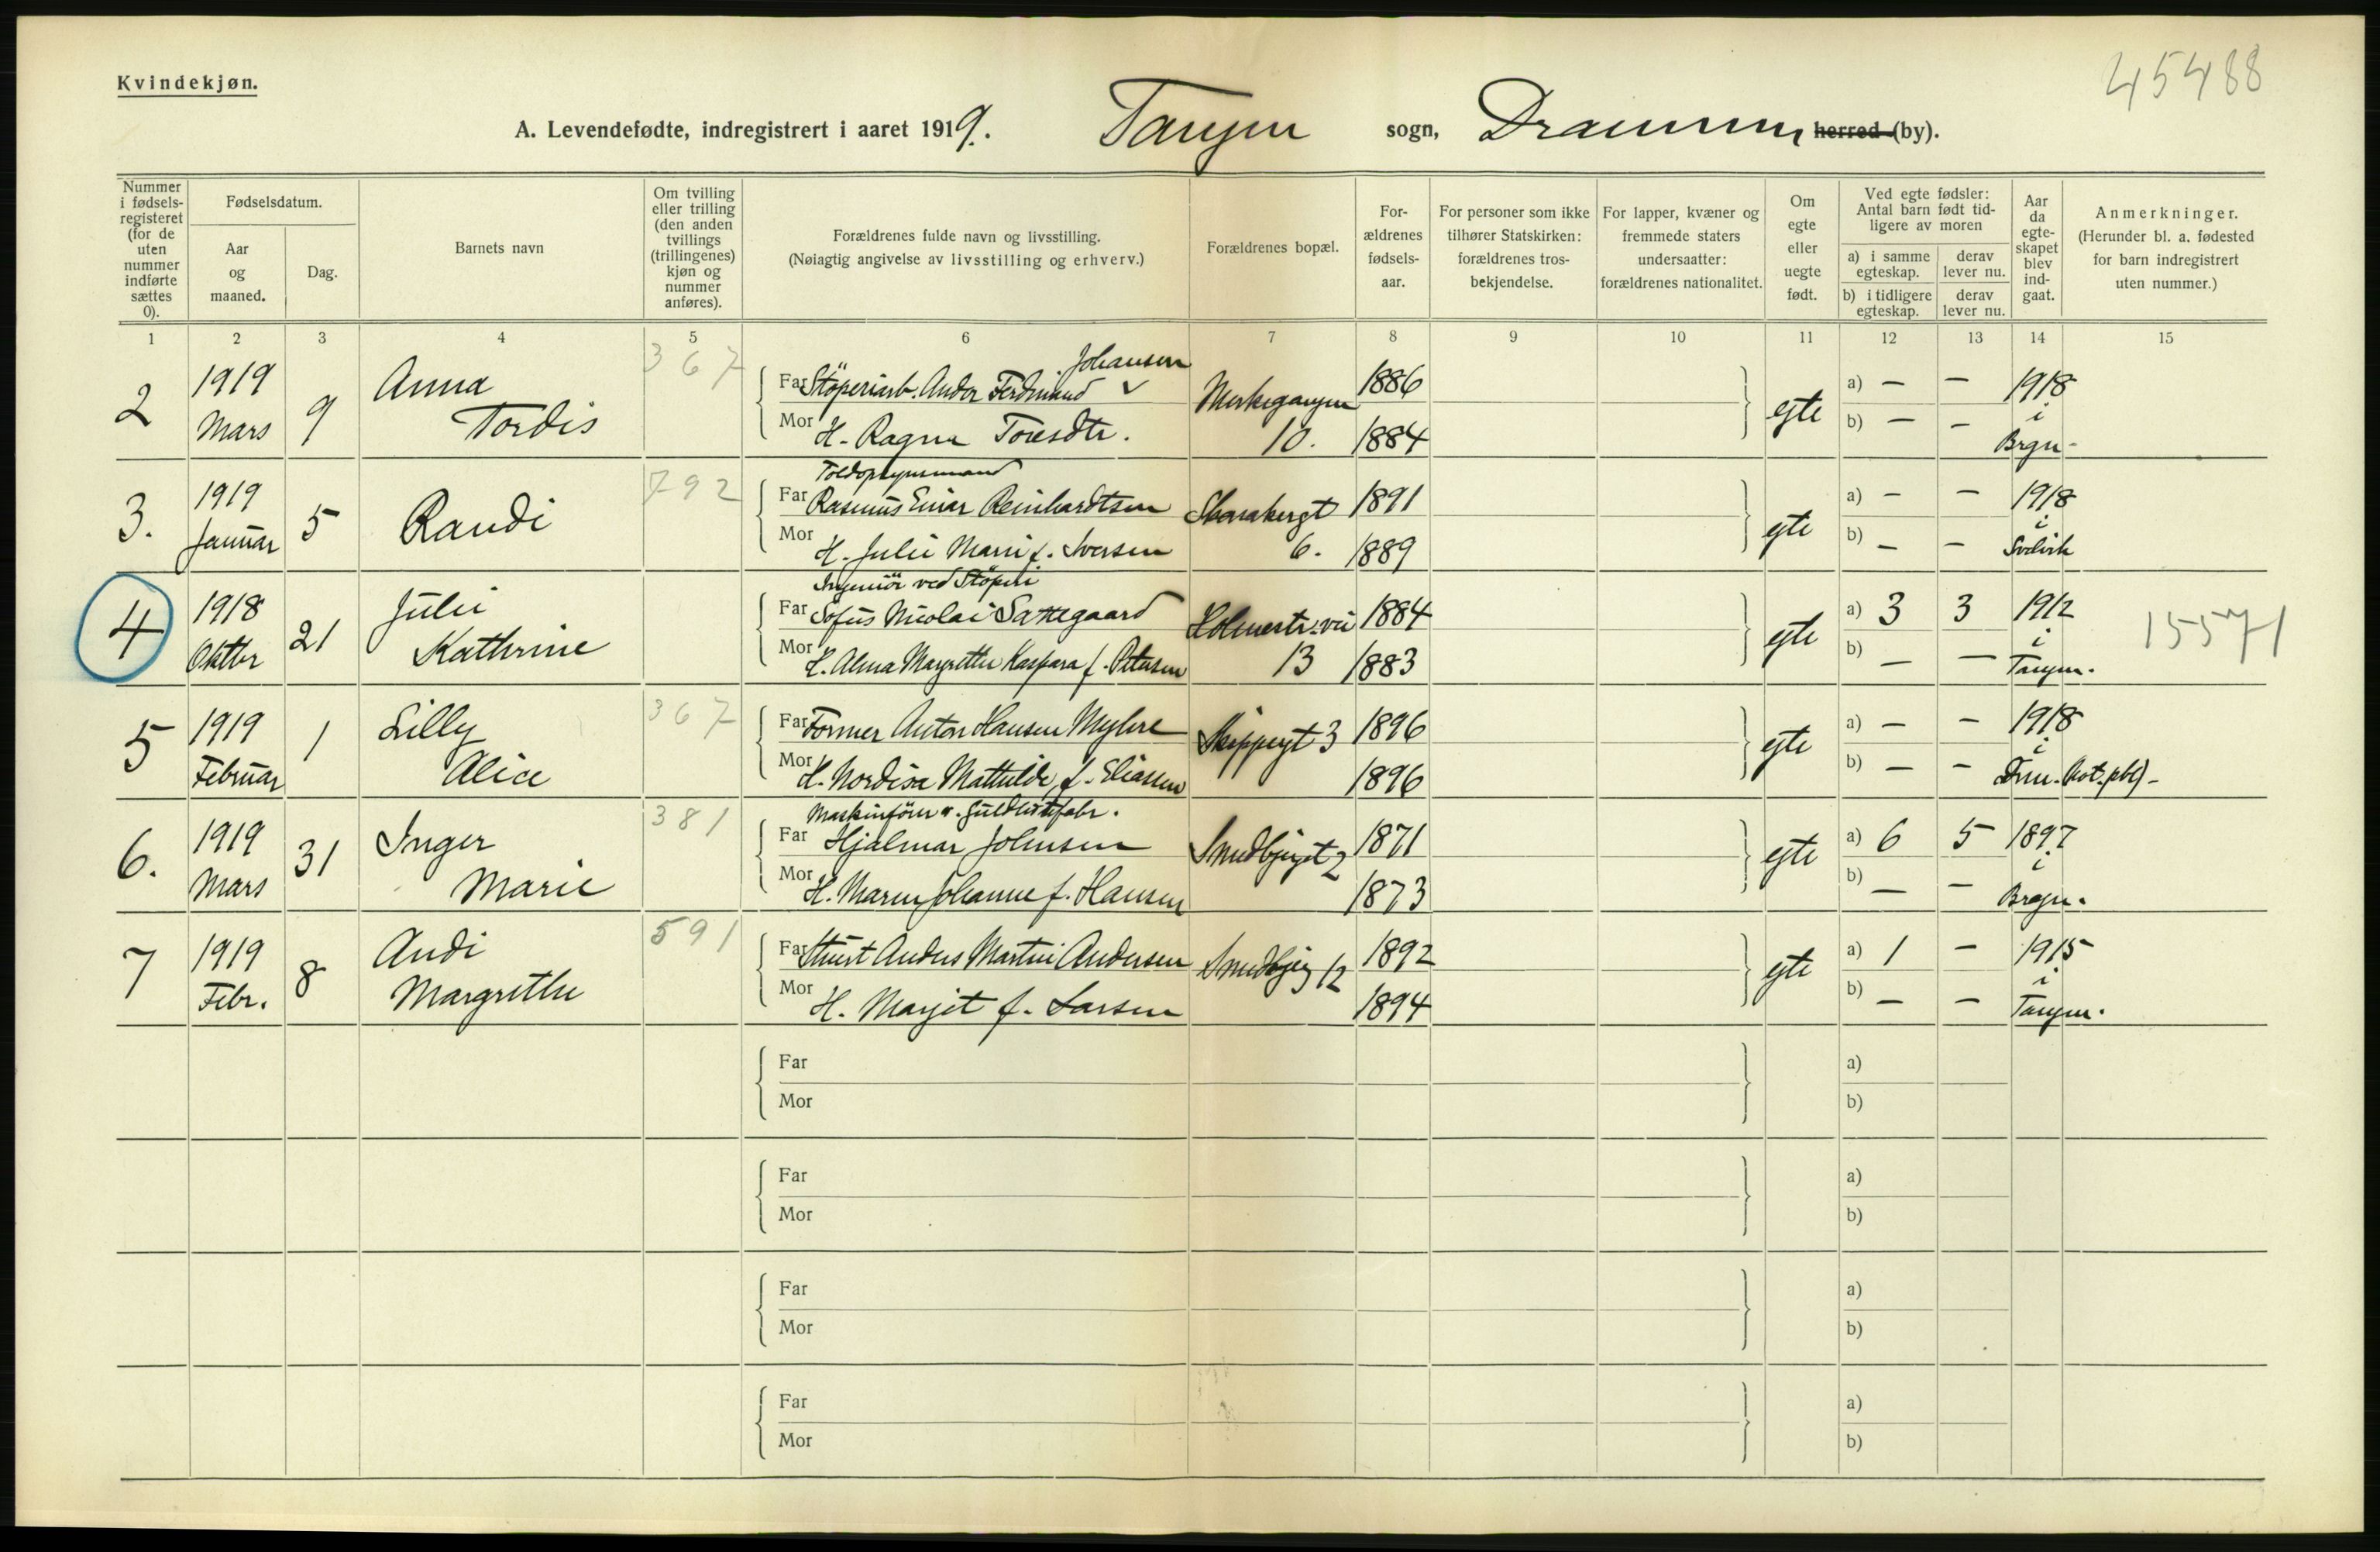 45488
Kvindekjøn.
A. Levendefødte, indregistrert i aaret 1919. Tangen sogn, Drammen herred (by).
Nummer i fødsels-registeret (for de uten nummer indførte sættes 0).
Fødselsdatum.
Aar og maaned.
Dag.
Barnets navn
Om tvilling eller trilling (den anden tvillings (trillingenes) kjøn og nummer anføres).
Forældrenes fulde navn og livsstilling.
(Nøiagtig angivelse av livsstilling og erhverv.)
Forældrenes bopæl.
For-ældrenes fødsels-aar.
For personer som ikke tilhører Statskirken: forældrenes tros-bekjendelse.
For lapper, kvæner og fremmede staters undersaatter: forældrenes nationalitet.
Om egte eller uegte født.
Ved egte fødsler: Antal barn født tid-ligere av moren
a) i samme egteskap. derav lever nu.
b) i tidligere egteskap. derav lever nu.
Aar da egte-skapet blev ind-gaat.
Anmerkninger.
(Herunder bl. a. fødested for barn indregistrert uten nummer.)
1 2 3 4 5 6 7 8 9 10 11 12 13 14 15
2 1919 Mars 9 Anna Tordis 367
Far Støperiarb. Andor Ferdinand Johansen 1886
Mor H. Ragna Toresdtr. 10. 1884
egte a) — — b) — — 1918 i Brgn-
3. 1919 Januar 5 Randi 792
Far Rasmus Einar Reinhardtsen 1891
Mor H. Julie Marie f. Iversen 6. 1889
egte a) — — b) — — 1918 i Svelvik
4 1918 Oktbr 21 Julie Kathrine
Ingeniör ved Støperi
Far Sofus Nicolai Sattegaard 1884
Mor H. Alma Margrethe Kaspara f. Petersen 13 1883
egte a) 3 3 b) — — 1912 i Tangen. 15571
5 1919 Februar 1 Lilly Alice 367
Far Former Anton Hansen Myhre Skippergt 3 1896
Mor H. Nordisa Mathilde, f. Eliassen 1896
egte a) — — b) — — 1918 i Drm.
6. 1919 Mars 31 Inger Marie 381
Far Hjalmar Johnsen 2 1871
Mor H. Maren Johanne f. Hansen 1873
egte a) 6 5 b) — — 1897 i Bragn.
7 1919 Febr. 8 Andi Margrethe 591
Far Stuert Anders Martin Andersen 12 1892
Mor H. Marjit f. Larsen 1894
egte a) 1 — b) — — 1915 i Tangen.
Far a)
Mor b)
Far a)
Mor b)
Far a)
Mor b)
Far a)
Mor b)